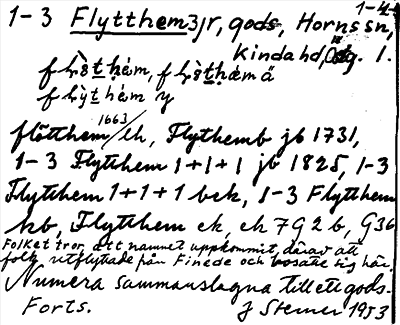 1-4
1-3 Flytthem 3 jr, gods, Horns sn,
Kinda hd, Östg. l.
flytthem/ek, Flythemb jb 1731,
1663
1-3 Flytthem 1+1+1 jb 1825, 1-3
Flytthem 1+1+1 bek, 1-3 Flytthem
kb, Flytthem ek, ek 7G 2 b, G36
Folket tror, att namnet uppkommit, därav att
folk utflyttade från Finede och bosatte sig här.
Numera sammanslagna till ett gods.
Forts. J Sterner 1953